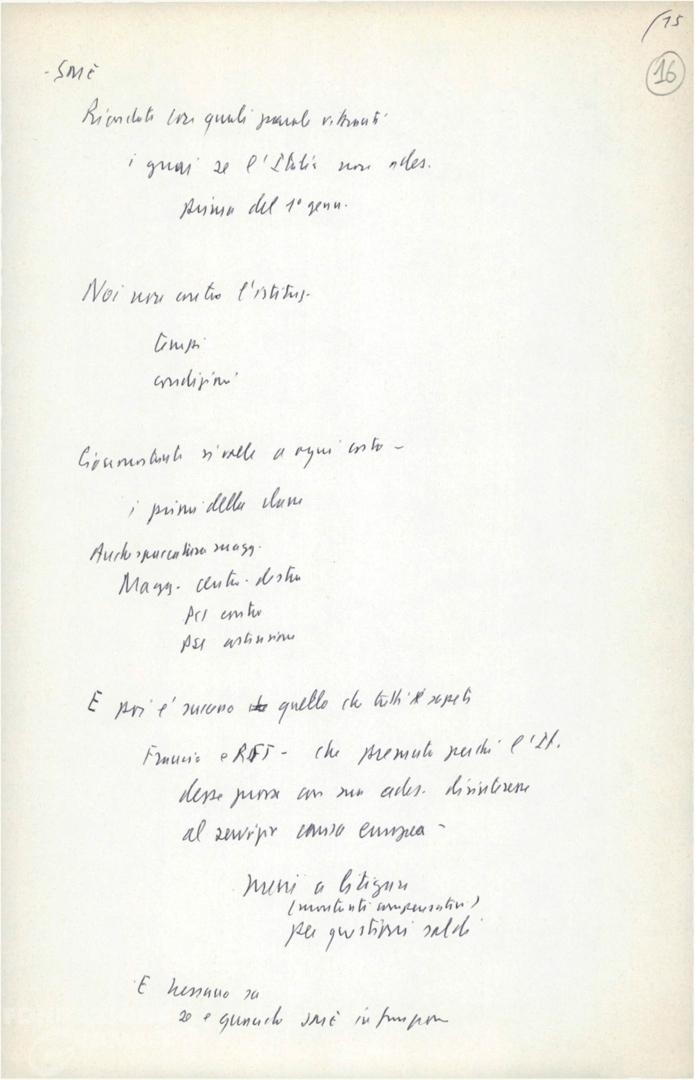 /15
16
- SME
Ricordate con quali parole vibranti
i guai se l'Italia non ades.
prima del 1° genn.
Noi non contro l'istituz.
tempi
condizioni
Ciononostante si volle a ogni costo -
i primi della classe
Anche spaccatura magg.
Magg. centro-destra
PCI contro
PSI astensione
E poi è successo quello che tutti sapete
Francia e RFT - che premuto perché l'It.
desse prova con sua ades. disinteresse
al servizio causa europea -
messi a litigare
(montanti compensativi)
per questioni soldi
E nessuno sa
se e quando SME in funzione